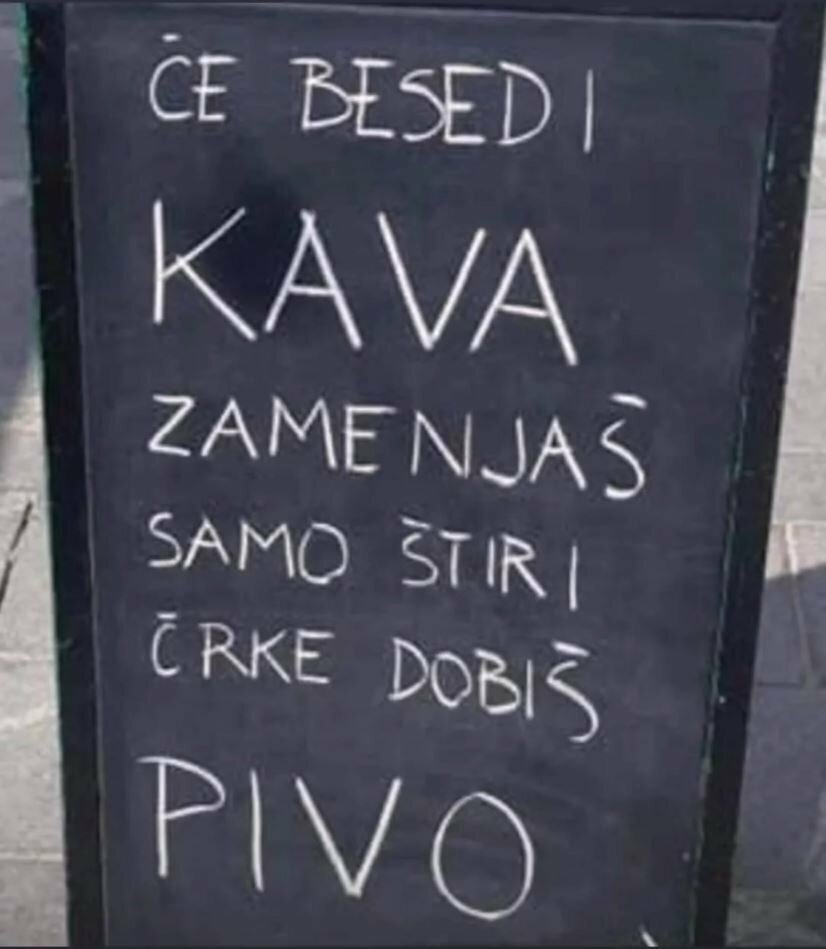 ČE BESEDI
KAVA
ZAMENJAŠ
SAMO ŠTIRI
ČRKE DOBIŠ
PIVO